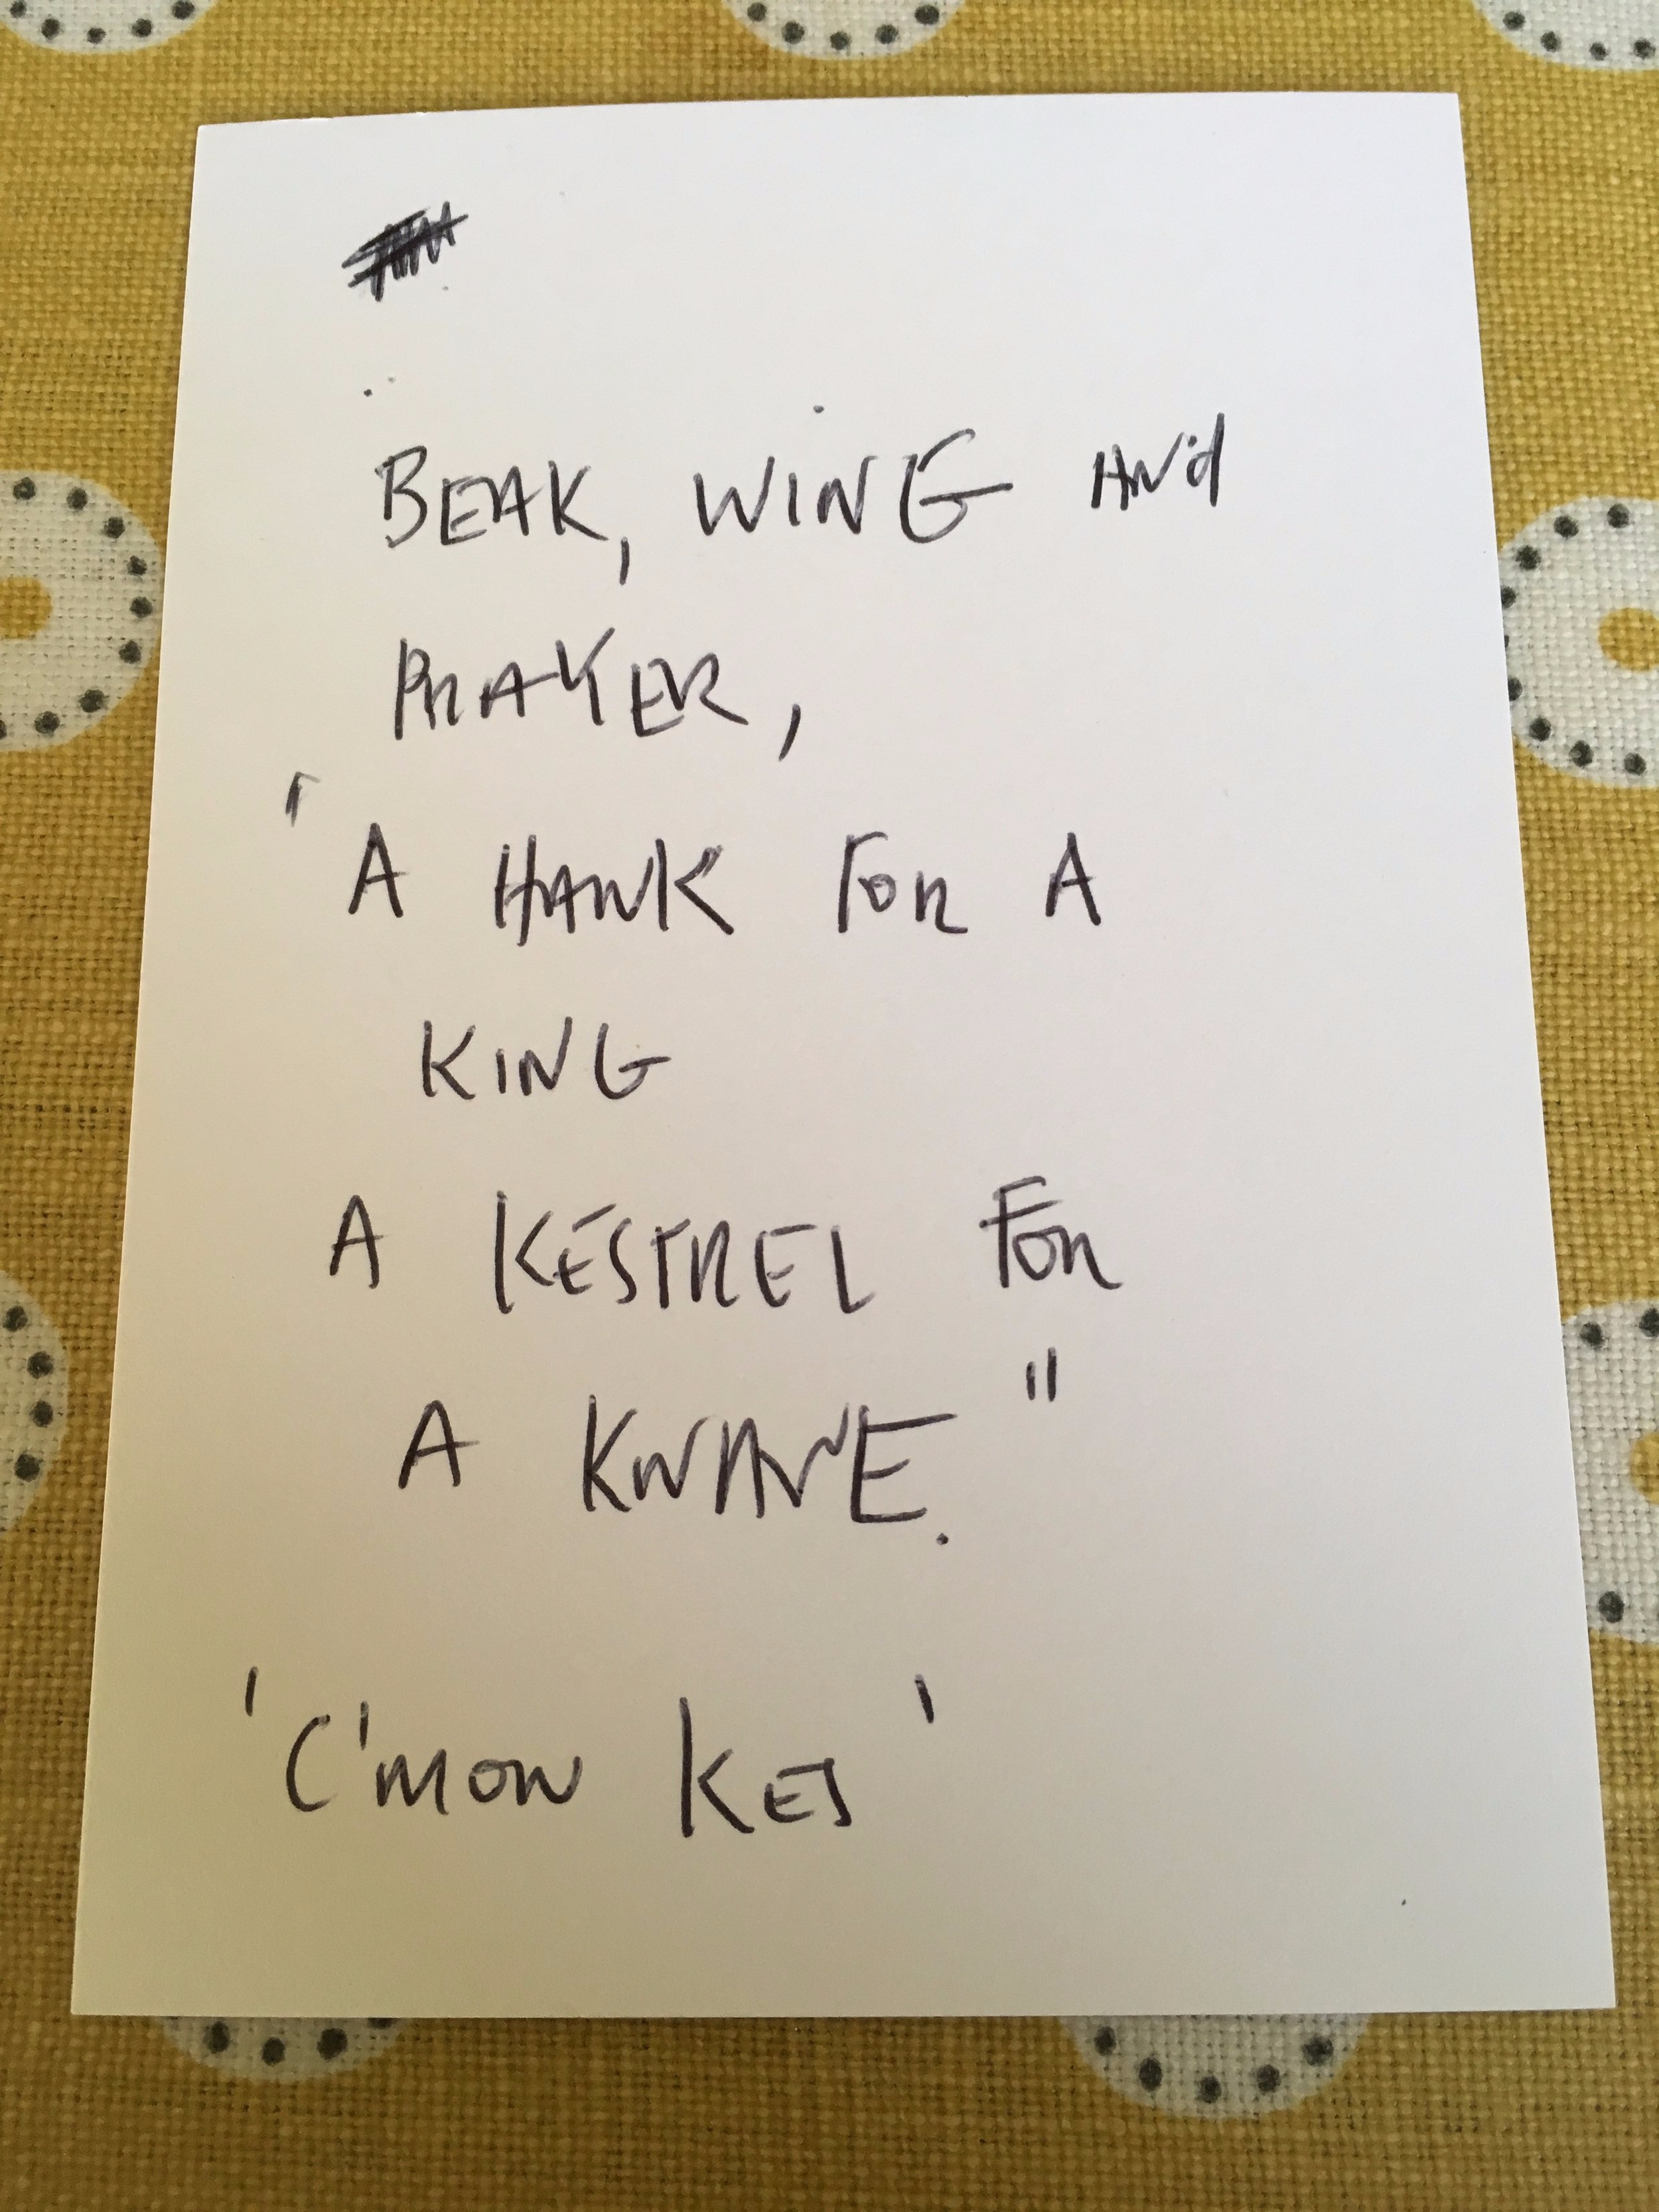 BEAK, WING AND
PRAYER,
"A HAWK FOR A
KING
A KESTREL FOR
A KNAVE."
'C'MON KES'